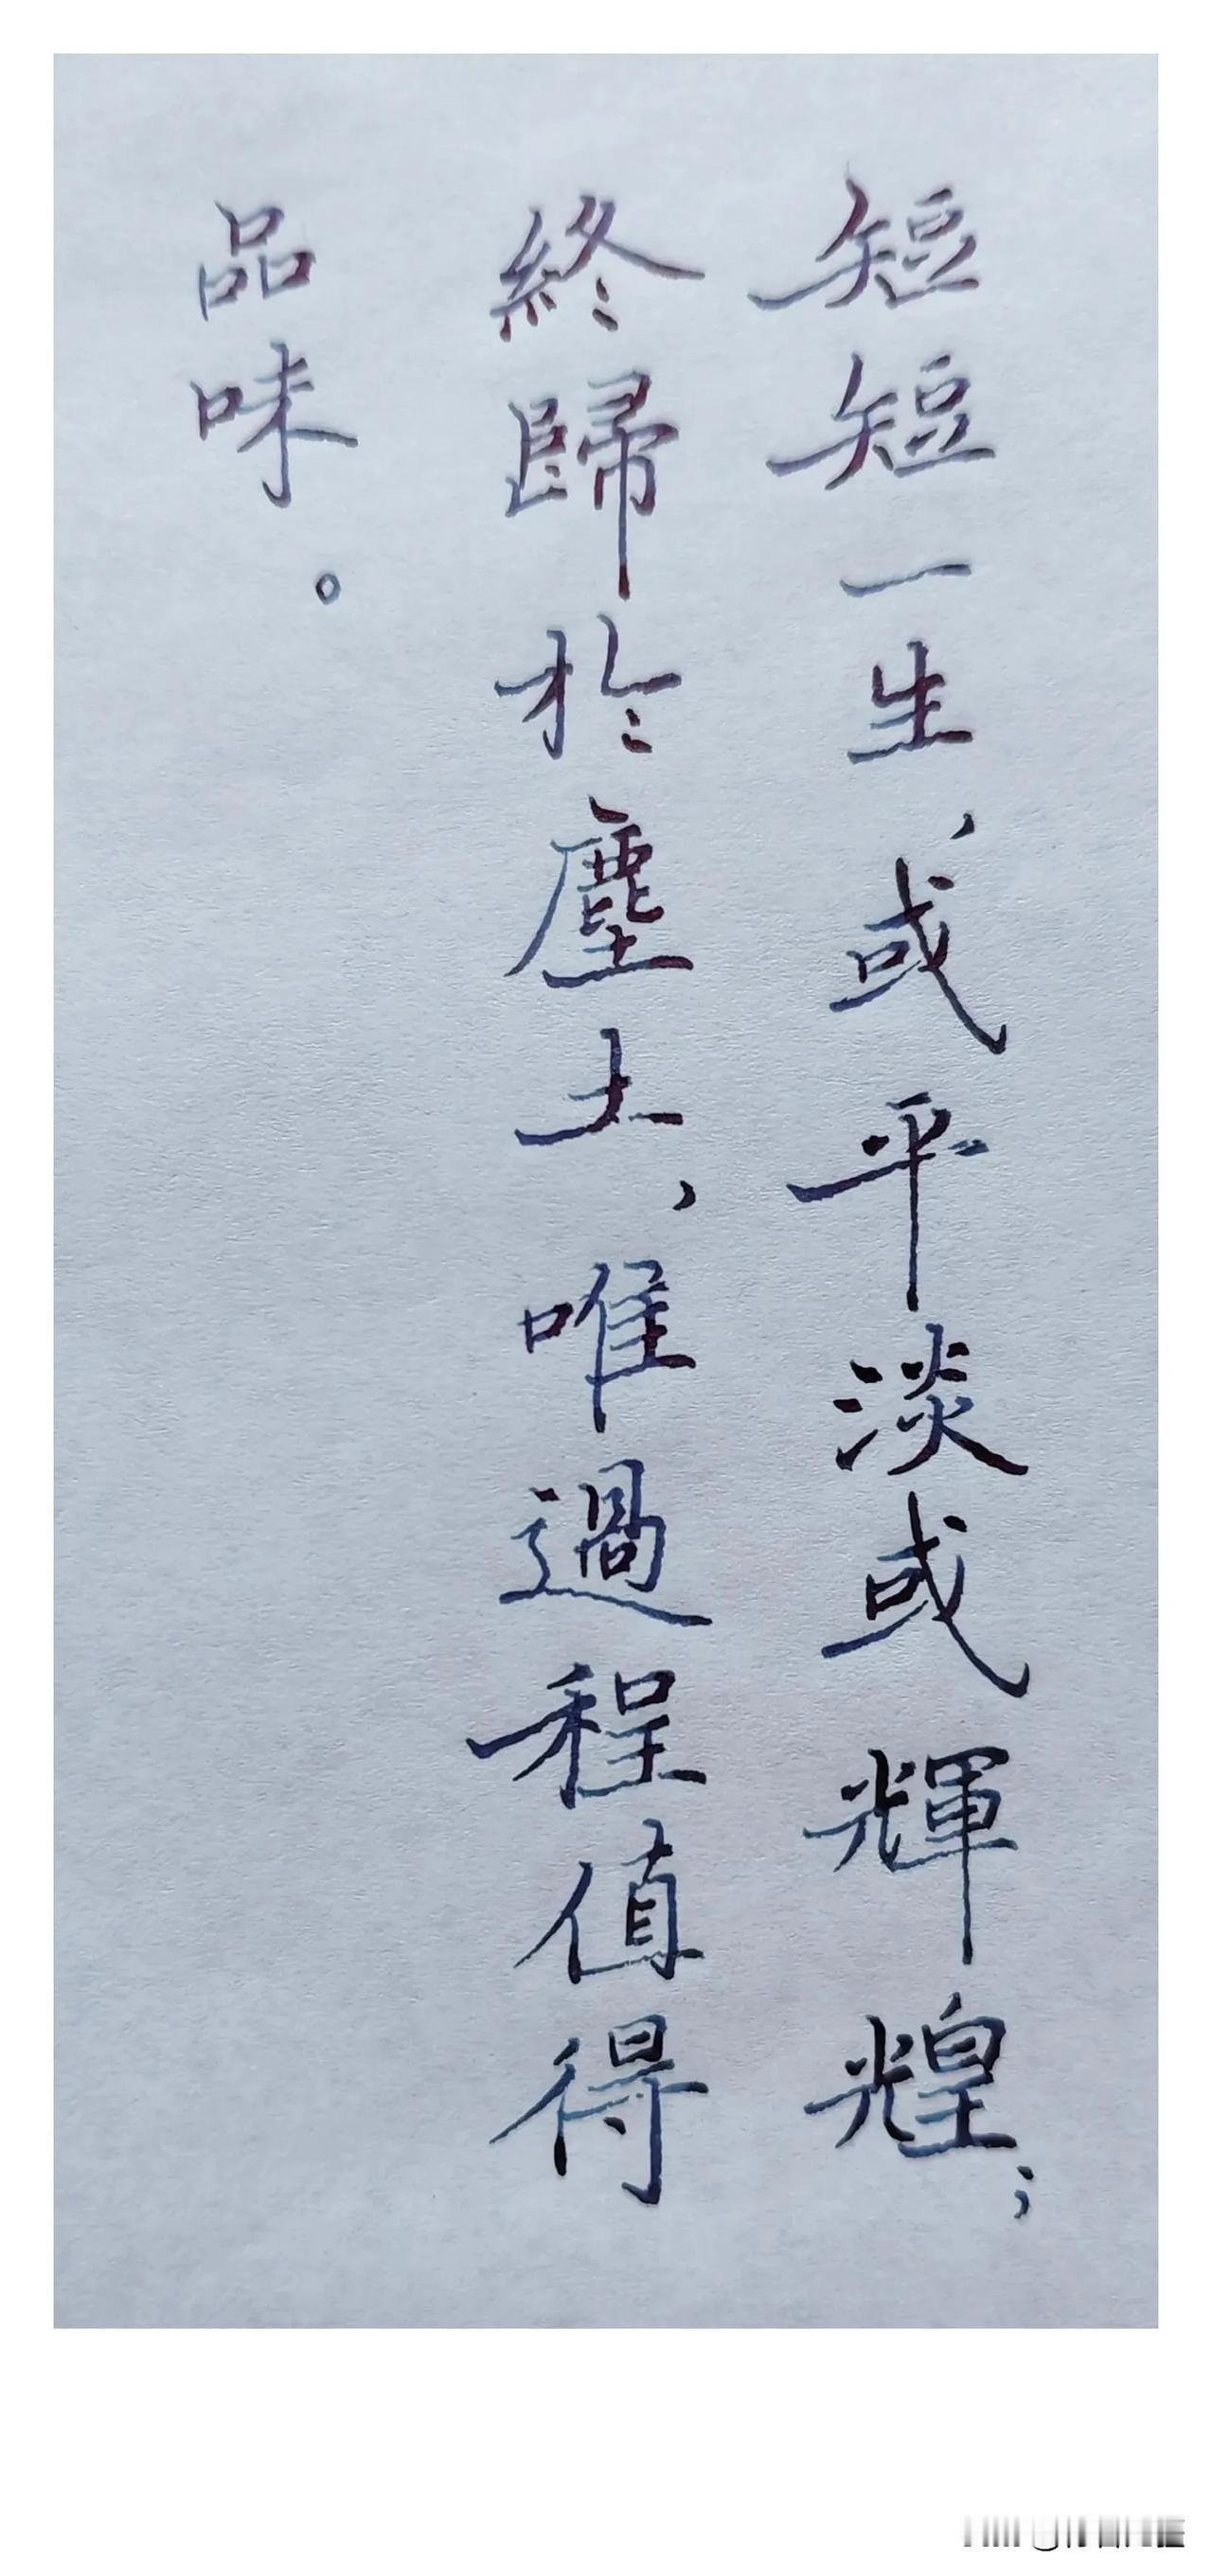 短短一生，或平淡或輝煌；
終歸於塵土，唯過程值得
品味。